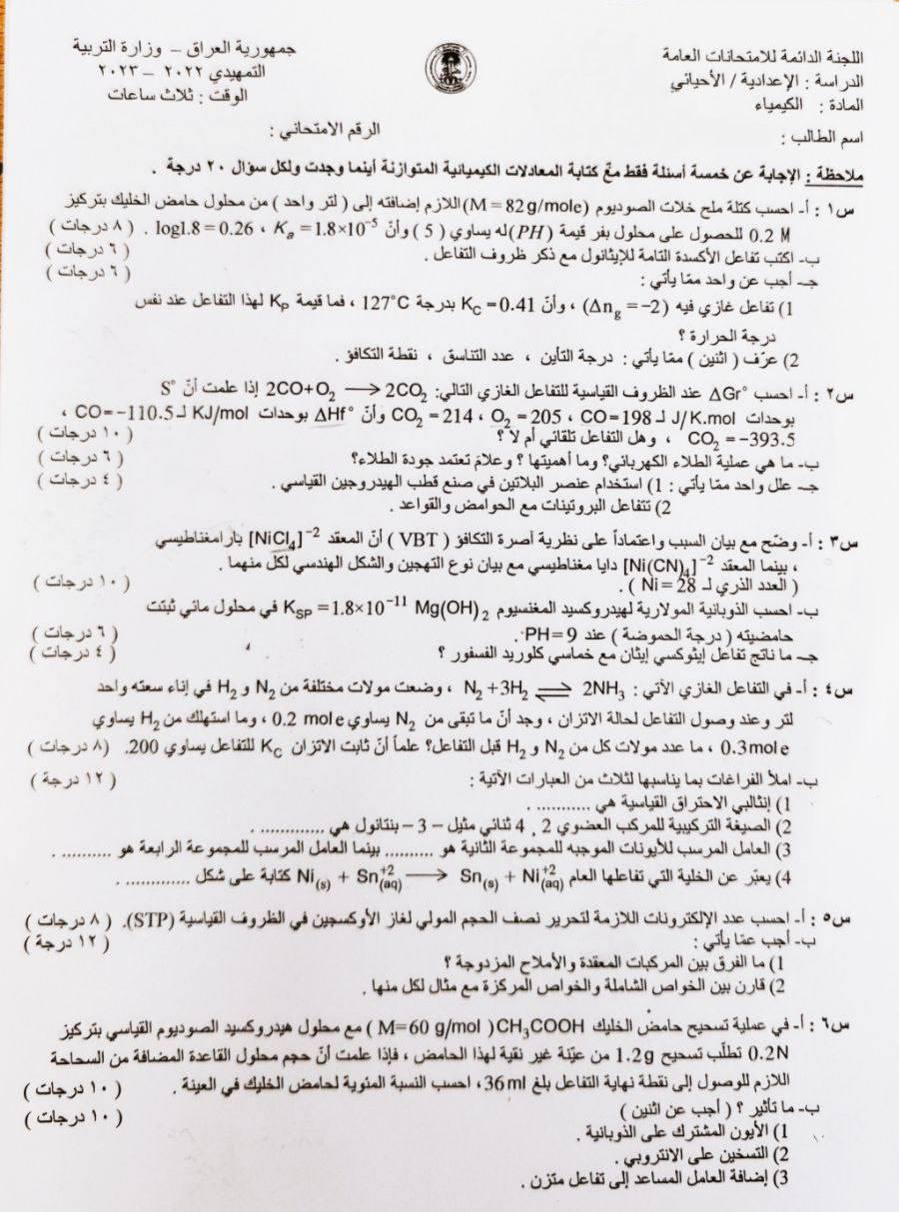 اللجنة الدائمة للامتحانات العامة
الدراسة : الإعدادية / الأحيائي
المادة : الكيمياء
اسم الطالب :
جمهورية العراق – وزارة التربية
التمهيدي ٢٠٢٢ – ٢٠٢٣
الوقت : ثلاث ساعات
الرقم الامتحاني :
ملاحظة : الإجابة عن خمسة أسئلة فقط مع كتابة المعادلات الكيميائية المتوازنة أينما وجدت ولكل سؤال ٢٠ درجة .
س١ : أ- احسب كتلة ملح خلات الصوديوم (M = 82 g/mole) اللازم إضافته إلى ( لتر واحد ) من محلول حامض الخليك بتركيز
0.2 M للحصول على محلول بفر قيمة (PH) له يساوي ( 5 ) وأنّ Kₐ = 1.8×10⁻⁵ ، log1.8 = 0.26 . ( ٨ درجات )
ب- اكتب تفاعل الأكسدة التامة للإيثانول مع ذكر ظروف التفاعل . ( ٦ درجات )
جـ- أجب عن واحد ممّا يأتي : ( ٦ درجات )
1) تفاعل غازي فيه (Δn_g = −2) ، وأنّ K_C = 0.41 بدرجة 127°C ، فما قيمة K_P لهذا التفاعل عند نفس
درجة الحرارة ؟
2) عرّف ( اثنين ) ممّا يأتي : درجة التأين ، عدد التناسق ، نقطة التكافؤ .
س٢ : أ- احسب ΔGr° عند الظروف القياسية للتفاعل الغازي التالي: 2CO+O₂ ⟶ 2CO₂ إذا علمت أنّ S°
بوحدات J/K.mol لـ CO=198 ، O₂ = 205 ، CO₂ = 214 وأنّ ΔHf° بوحدات KJ/mol لـ CO=−110.5 ،
CO₂ = −393.5 ، وهل التفاعل تلقائي أم لا ؟ ( ١٠ درجات )
ب- ما هي عملية الطلاء الكهربائي؟ وما أهميتها ؟ وعلامَ تعتمد جودة الطلاء؟ ( ٦ درجات )
جـ- علل واحد ممّا يأتي : 1) استخدام عنصر البلاتين في صنع قطب الهيدروجين القياسي . ( ٤ درجات )
2) تتفاعل البروتينات مع الحوامض والقواعد .
س٣ : أ- وضّح مع بيان السبب واعتماداً على نظرية أصرة التكافؤ ( VBT ) أنّ المعقد [NiCl₄]⁻² بارامغناطيسي
، بينما المعقد [Ni(CN)₄]⁻² دايا مغناطيسي مع بيان نوع التهجين والشكل الهندسي لكل منهما .
( العدد الذري لـ Ni = 28 ) . ( ١٠ درجات )
ب- احسب الذوبانية المولارية لهيدروكسيد المغنسيوم Mg(OH)₂ K_SP = 1.8×10⁻¹¹ في محلول مائي ثبتت
حامضيته ( درجة الحموضة ) عند PH=9 . ( ٦ درجات )
جـ- ما ناتج تفاعل إيثوكسي إيثان مع خماسي كلوريد الفسفور ؟ ( ٤ درجات )
س٤ : أ- في التفاعل الغازي الآتي : N₂ +3H₂ ⇌ 2NH₃ ، وضعت مولات مختلفة من N₂ و H₂ في إناء سعته واحد
لتر وعند وصول التفاعل لحالة الاتزان ، وجد أنّ ما تبقى من N₂ يساوي 0.2 mole ، وما استهلك من H₂ يساوي
0.3mole ، ما عدد مولات كل من N₂ و H₂ قبل التفاعل؟ علماً أنّ ثابت الاتزان K_C للتفاعل يساوي 200. ( ٨ درجات )
ب- املأ الفراغات بما يناسبها لثلاث من العبارات الآتية : ( ١٢ درجة )
1) إنثالبي الاحتراق القياسية هي ........... .
2) الصيغة التركيبية للمركب العضوي 2 , 4 ثنائي مثيل – 3 – بنتانول هي ............. .
3) العامل المرسب للأيونات الموجبه للمجموعة الثانية هو .......... بينما العامل المرسب للمجموعة الرابعة هو .......... .
4) يعبّر عن الخلية التي تفاعلها العام Ni(s) + Sn⁺²(aq) ⟶ Sn(s) + Ni⁺²(aq) كتابة على شكل ............. .
س٥ : أ- احسب عدد الإلكترونات اللازمة لتحرير نصف الحجم المولي لغاز الأوكسجين في الظروف القياسية (STP). ( ٨ درجات )
ب- أجب عمّا يأتي : ( ١٢ درجة )
1) ما الفرق بين المركبات المعقدة والأملاح المزدوجة ؟
2) قارن بين الخواص الشاملة والخواص المركزة مع مثال لكل منها .
س٦ : أ- في عملية تسحيح حامض الخليك CH₃COOH ( M=60 g/mol ) مع محلول هيدروكسيد الصوديوم القياسي بتركيز
0.2N تطلّب تسحيح 1.2g من عيّنة غير نقية لهذا الحامض ، فإذا علمت أنّ حجم محلول القاعدة المضافة من السحاحة
اللازم للوصول إلى نقطة نهاية التفاعل بلغ 36ml ، احسب النسبة المئوية لحامض الخليك في العينة . ( ١٠ درجات )
ب- ما تأثير ؟ ( أجب عن اثنين ) ( ١٠ درجات )
1) الأيون المشترك على الذوبانية .
2) التسخين على الانتروبي .
3) إضافة العامل المساعد إلى تفاعل متزن .